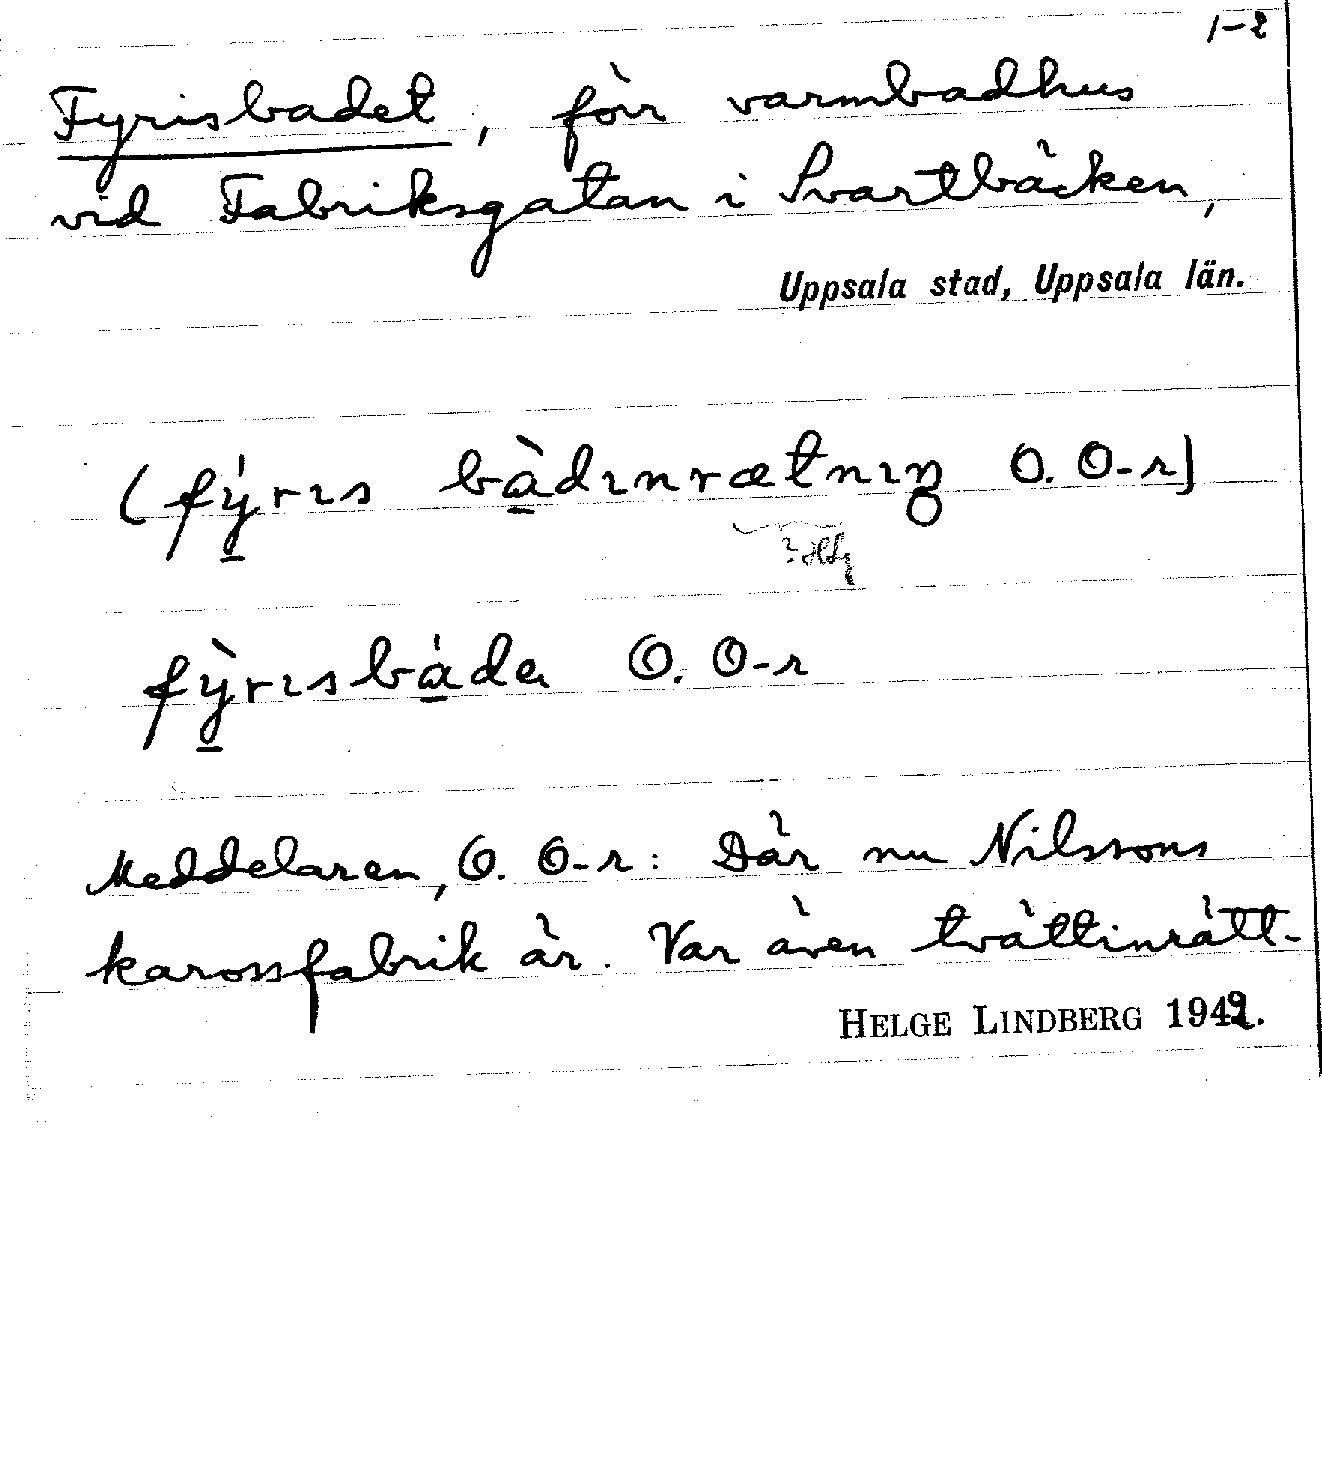 1-2
Fyrisbadet, förr varmbadhus
vid Fabriksgatan i Svartbäcken,
Uppsala stad, Uppsala län.
(fýrɩs bàdɩnrætnɩŋ O. O-r]
fỳrɩsbáda O. O-r
Meddelaren, O. O-r: Där nu Nilssons
karossfabrik är. Var även tvättinrätt-
HELGE LINDBERG 1949.